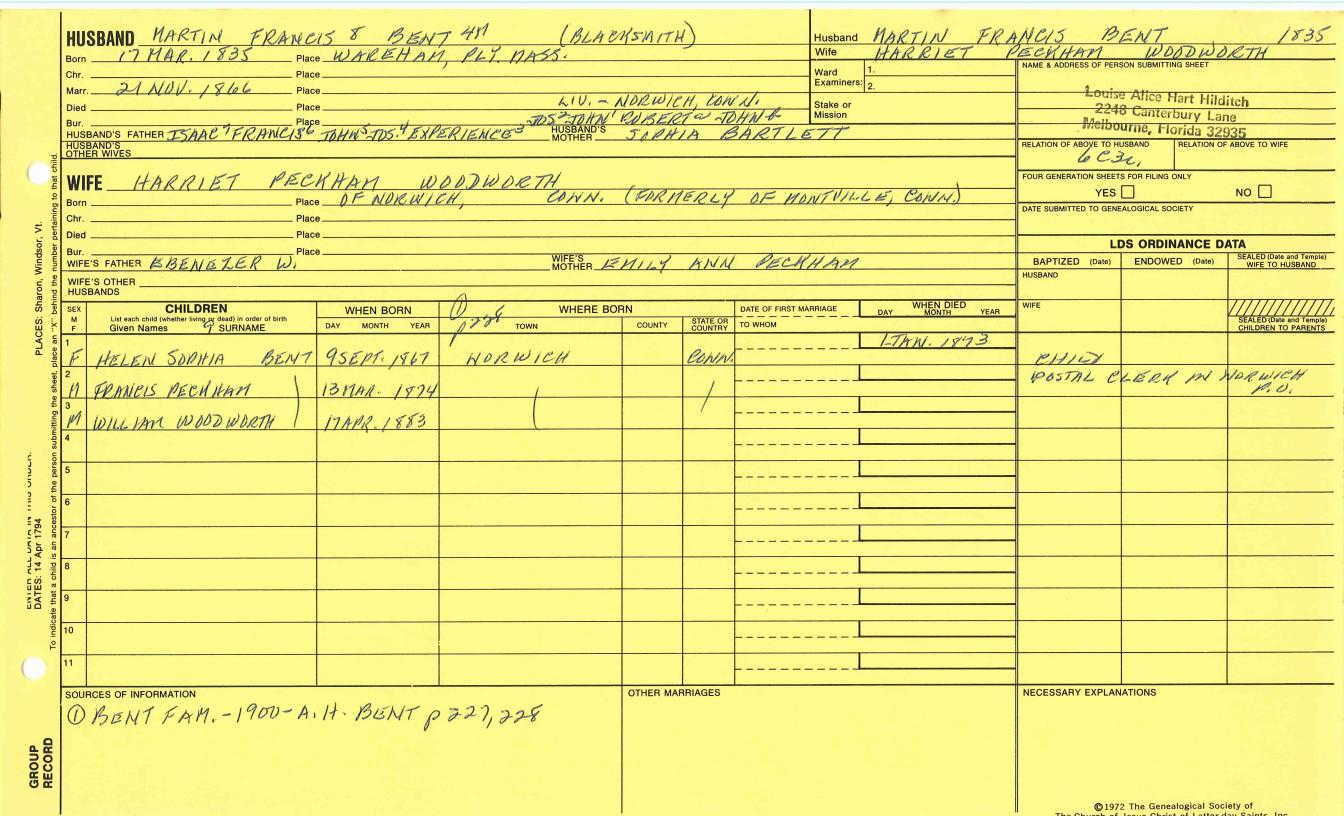 HUSBAND MARTIN FRANCIS 8 BENT 4M (BLACKSMITH)
Born 17 MAR. 1835 Place WAREHAM, PLY. MASS.
Chr. Place
Marr. 21 NOV. 1866 Place
Died Place LIV. - NORWICH, CONN.
Bur. Place JOS² JOHN¹ ROBERTª JOHN
HUSBAND'S FATHER ISAAC⁷ FRANCIS⁶ JOHN⁵ JOS.⁴ EXPERIENCE³ HUSBAND'S MOTHER SOPHIA BARTLETT
HUSBAND'S OTHER WIVES
Husband MARTIN FRANCIS BENT 1835
Wife HARRIET PECKHAM WOODWORTH
Ward Examiners: 1.
2.
Stake or Mission
NAME & ADDRESS OF PERSON SUBMITTING SHEET
Louise Alice Hart Hilditch
2248 Canterbury Lane
Melbourne, Florida 32935
RELATION OF ABOVE TO HUSBAND RELATION OF ABOVE TO WIFE
6C3r.
FOUR GENERATION SHEETS FOR FILING ONLY
YES NO
DATE SUBMITTED TO GENEALOGICAL SOCIETY
WIFE HARRIET PECKHAM WOODWORTH
Born Place OF NORWICH, CONN. (FORMERLY OF MONTVILLE, CONN.)
Chr. Place
Died Place
Bur. Place
WIFE'S FATHER EBENEZER W. WIFE'S MOTHER EMILY ANN PECKHAM
WIFE'S OTHER HUSBANDS
LDS ORDINANCE DATA
BAPTIZED (Date) ENDOWED (Date) SEALED (Date and Temple) WIFE TO HUSBAND
HUSBAND
WIFE
SEALED (Date and Temple) CHILDREN TO PARENTS
SEX M F
CHILDREN
List each child (whether living or dead) in order of birth
Given Names 9 SURNAME
WHEN BORN
DAY MONTH YEAR
① p 228
WHERE BORN
TOWN COUNTY STATE OR COUNTRY
DATE OF FIRST MARRIAGE
TO WHOM
WHEN DIED
DAY MONTH YEAR
1 F HELEN SOPHIA BENT 9 SEPT. 1867 NORWICH CONN. 1 JAN. 1873 CHILD
2 M FRANCIS PECKHAM 13 MAR. 1874 POSTAL CLERK IN NORWICH P.O.
3 M WILLIAM WOODWORTH 17 APR. 1883
4
5
6
7
8
9
10
11
SOURCES OF INFORMATION
① BENT FAM. - 1900 - A.H. BENT p 227, 228
OTHER MARRIAGES
NECESSARY EXPLANATIONS
©1972 The Genealogical Society of
The Church of Jesus Christ of Latter-day Saints, Inc.
PLACES: Sharon, Windsor, Vt.
ENTER ALL DATA IN THIS ORDER:
DATES: 14 Apr 1794
To indicate that a child is an ancestor of the person submitting the sheet, place an "X" behind the number pertaining to that child.
GROUP RECORD